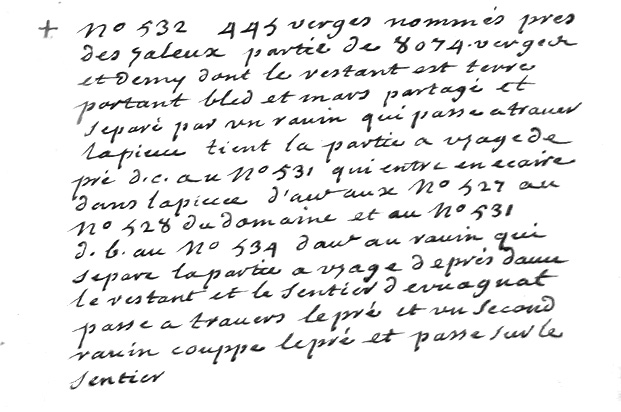 + No 532 445 verges nommés pres
des galeux partie de 8074 verges
et Demy dont le restant est terre
portant bled et mars partagé et
separé par vn rauin qui passe atrauer
lapiece tient la partie a vsage de
pré d.c. au No 531 qui entre en ecaire
dans lapiece d'aut aux No 527 au
No 528 du domaine et au No 531
d. b. au No 534 daut au rauin qui
separe lapartie a vsage deprés dauec
le restant et le Sentier d'evuagnat
passe a trauers lepré et vn Second
rauin couppe lepré et passe sur le
Sentier